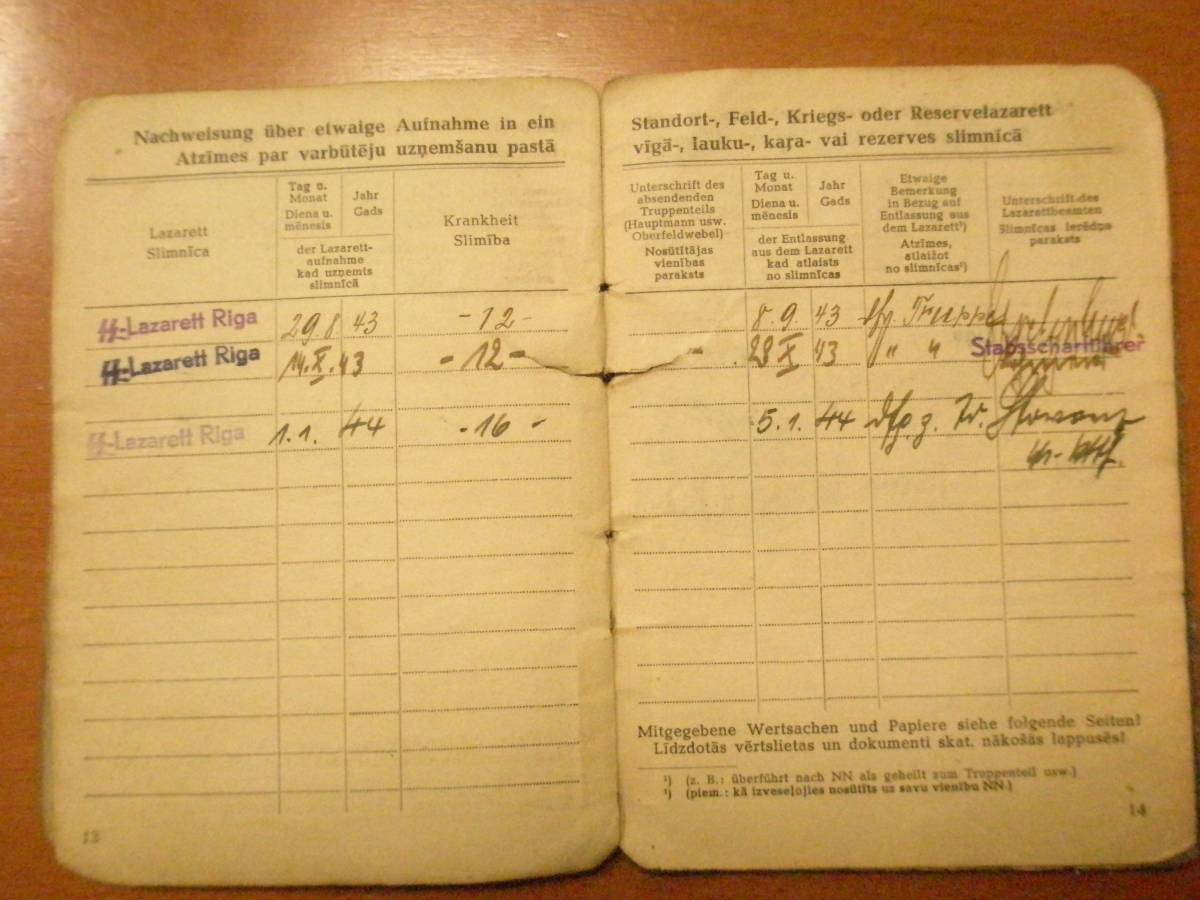 Nachweisung über etwaige Aufnahme in ein
Atzīmes par varbūtēju uzņemšanu pastā
Lazarett
Slimnīca
Tag u.
Monat
Diena u.
mēnesis
Jahr
Gads
der Lazarett-
aufnahme
kad uzņemts
slimnīcā
Krankheit
Slimība
SS-Lazarett Riga 29 8. 43 -12-
SS-Lazarett Riga 14. X. 43 -12-
SS-Lazarett Riga 1.1. 44 -16-
13
Standort-, Feld-, Kriegs- oder Reservelazarett
vīgā-, lauku-, kaŗa- vai rezerves slimnīcā
Unterschrift des
absendenden
Truppenteils
(Hauptmann usw.
Oberfeldwebel)
Nosūtītājas
vienības
paraksts
Tag u.
Monat
Diena u.
mēnesis
Jahr
Gads
der Entlassung
aus dem Lazarett
kad atlaists
no slimnīcas
Etwaige
Bemerkung
in Bezug auf
Entlassung aus
dem Lazarett¹)
Atzīmes,
atlaižot
no slimnīcas¹)
Unterschrift des
Lazarettbeamten
Slimnīcas ierēdņa
paraksts
8. 9. 43 Truppe
28 X 43 " " Stabsscharführer
5. 1. 44 z.
Mitgegebene Wertsachen und Papiere siehe folgende Seiten!
Līdzdotās vērtslietas un dokumenti skat. nākošās lappusēs!
¹) (z. B.: überführt nach NN als geheilt zum Truppenteil usw.)
¹) (piem.: kā izveseļojies nosūtīts uz savu vienību NN.)
14